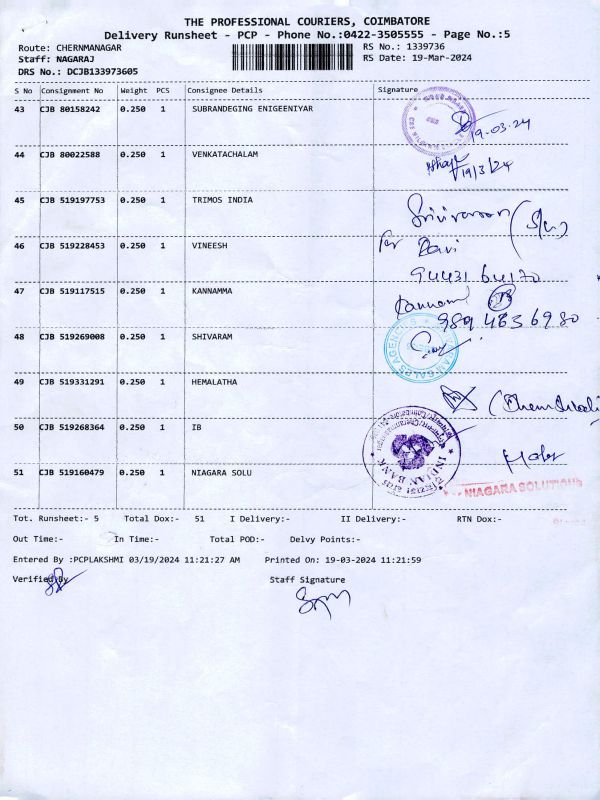 THE PROFESSIONAL COURIERS, COIMBATORE
Delivery Runsheet - PCP - Phone No.:0422-3505555 - Page No.:5
Route: CHERNMANAGAR
RS No.: 1339736
Staff: NAGARAJ
RS Date: 19-Mar-2024
DRS No.: DCJB133973605
S No Consignment No Weight PCS Consignee Details Signature
43 CJB 80158242 0.250 1 SUBRANDEGING ENIGEENIYAR
19-03-24
44 CJB 80022588 0.250 1 VENKATACHALAM
19/3/24
45 CJB 519197753 0.250 1 TRIMOS INDIA
46 CJB 519228453 0.250 1 VINEESH
Ravi
94431 64170
47 CJB 519117515 0.250 1 KANNAMMA
989 4636980
48 CJB 519269008 0.250 1 SHIVARAM
49 CJB 519331291 0.250 1 HEMALATHA
50 CJB 519268364 0.250 1 IB
INDIAN BANK
51 CJB 519160479 0.250 1 NIAGARA SOLU
NIAGARA SOLUTIONS
Tot. Runsheet:- 5 Total Dox:- 51 I Delivery:- II Delivery:- RTN Dox:-
Out Time:- In Time:- Total POD:- Delvy Points:-
Entered By :PCPLAKSHMI 03/19/2024 11:21:27 AM Printed On: 19-03-2024 11:21:59
Verified By Staff Signature